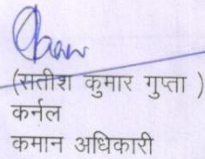 (सतीश कुमार गुप्ता )
कर्नल
कमान अधिकारी